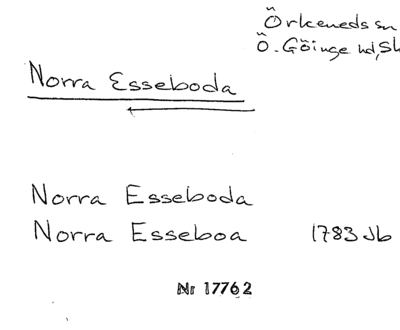 Örkeneds sn
Ö. Göinge hd, Sk
Norra Esseboda
Norra Esseboda
Norra Esseboa 1783 Jb
Nr 17762